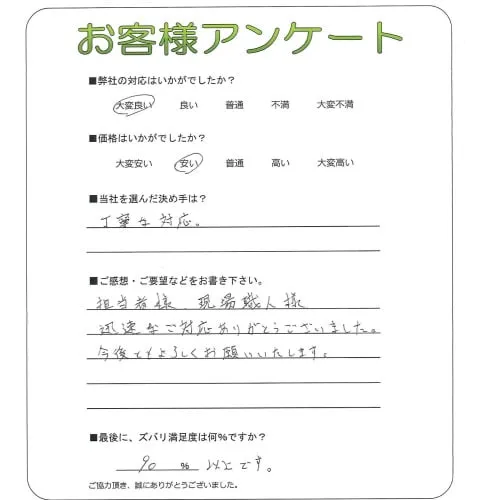 お客様アンケート
■弊社の対応はいかがでしたか？
大変良い 良い 普通 不満 大変不満
■価格はいかがでしたか？
大変安い 安い 普通 高い 大変高い
■当社を選んだ決め手は？
丁寧な対応。
■ご感想・ご要望などをお書き下さい。
担当者様、現場職人様
迅速なご対応ありがとうございました。
今後ともよろしくお願いいたします。
■最後に、ズバリ満足度は何％ですか？
90 ％ 以上です。
ご協力頂き、誠にありがとうございました。